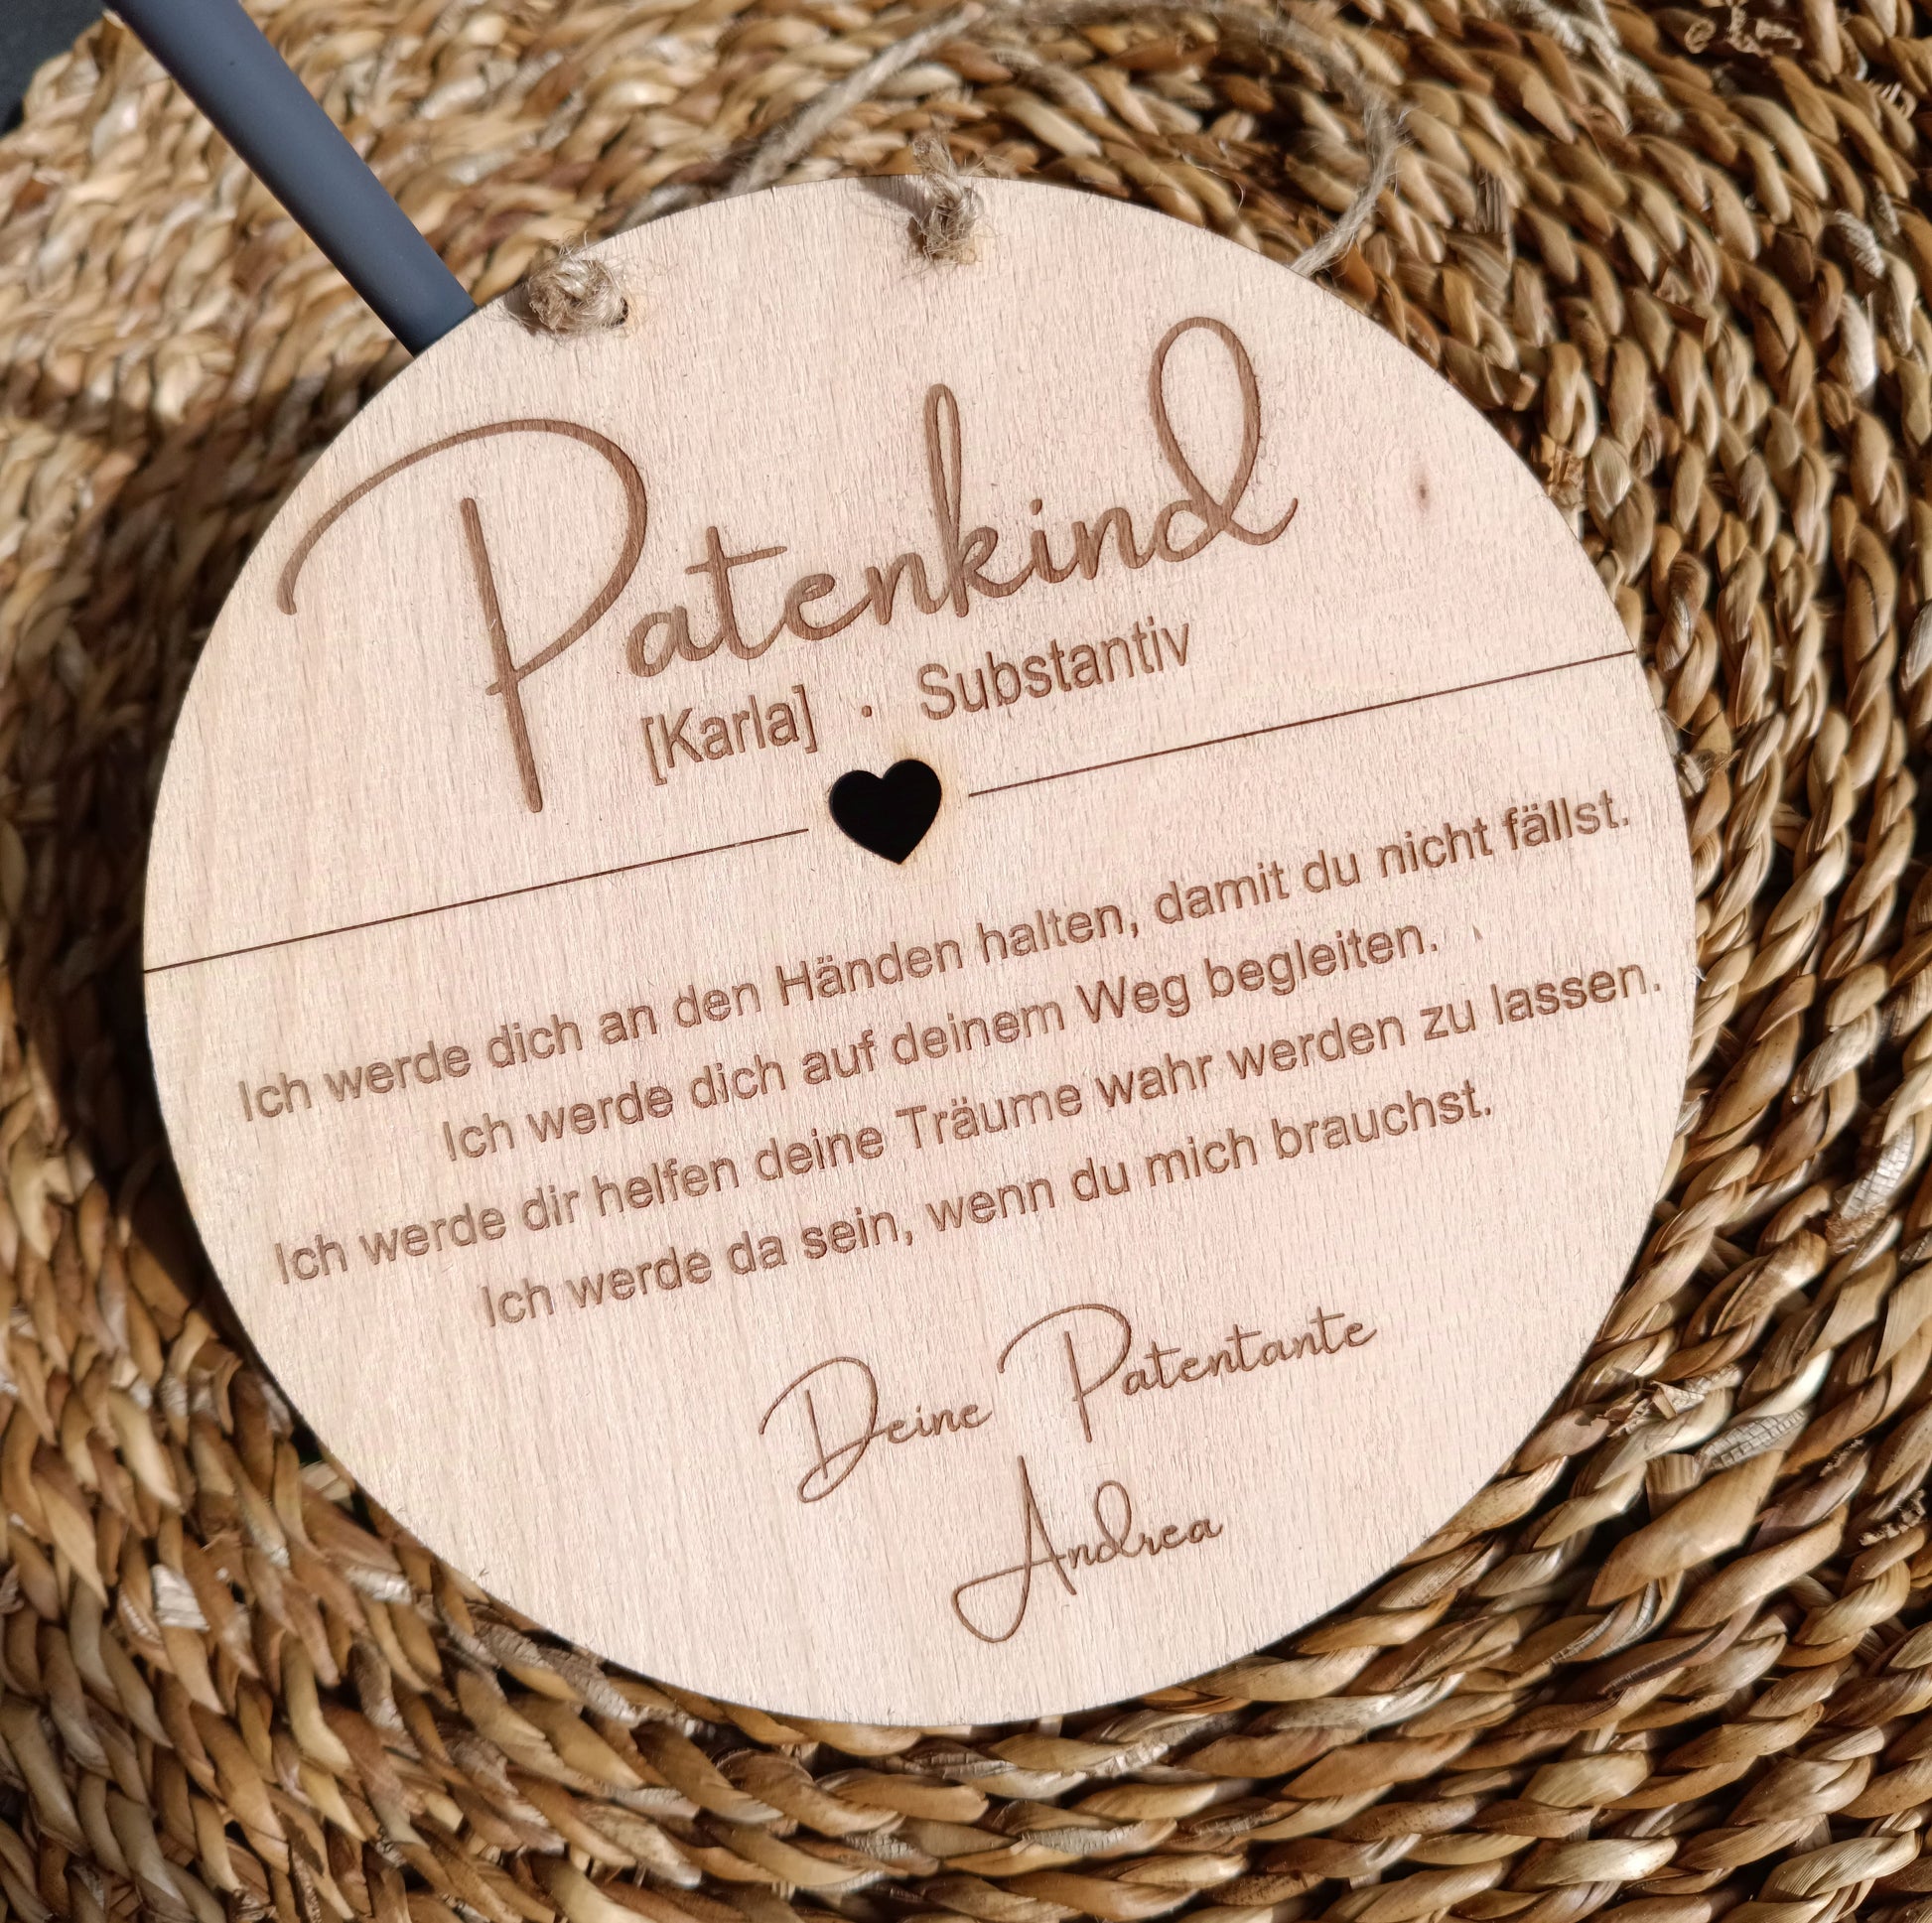 Patenkind
[Karla] · Substantiv
Ich werde dich an den Händen halten, damit du nicht fällst.
Ich werde dich auf deinem Weg begleiten.
Ich werde dir helfen deine Träume wahr werden zu lassen.
Ich werde da sein, wenn du mich brauchst.
Deine Patentante
Andrea